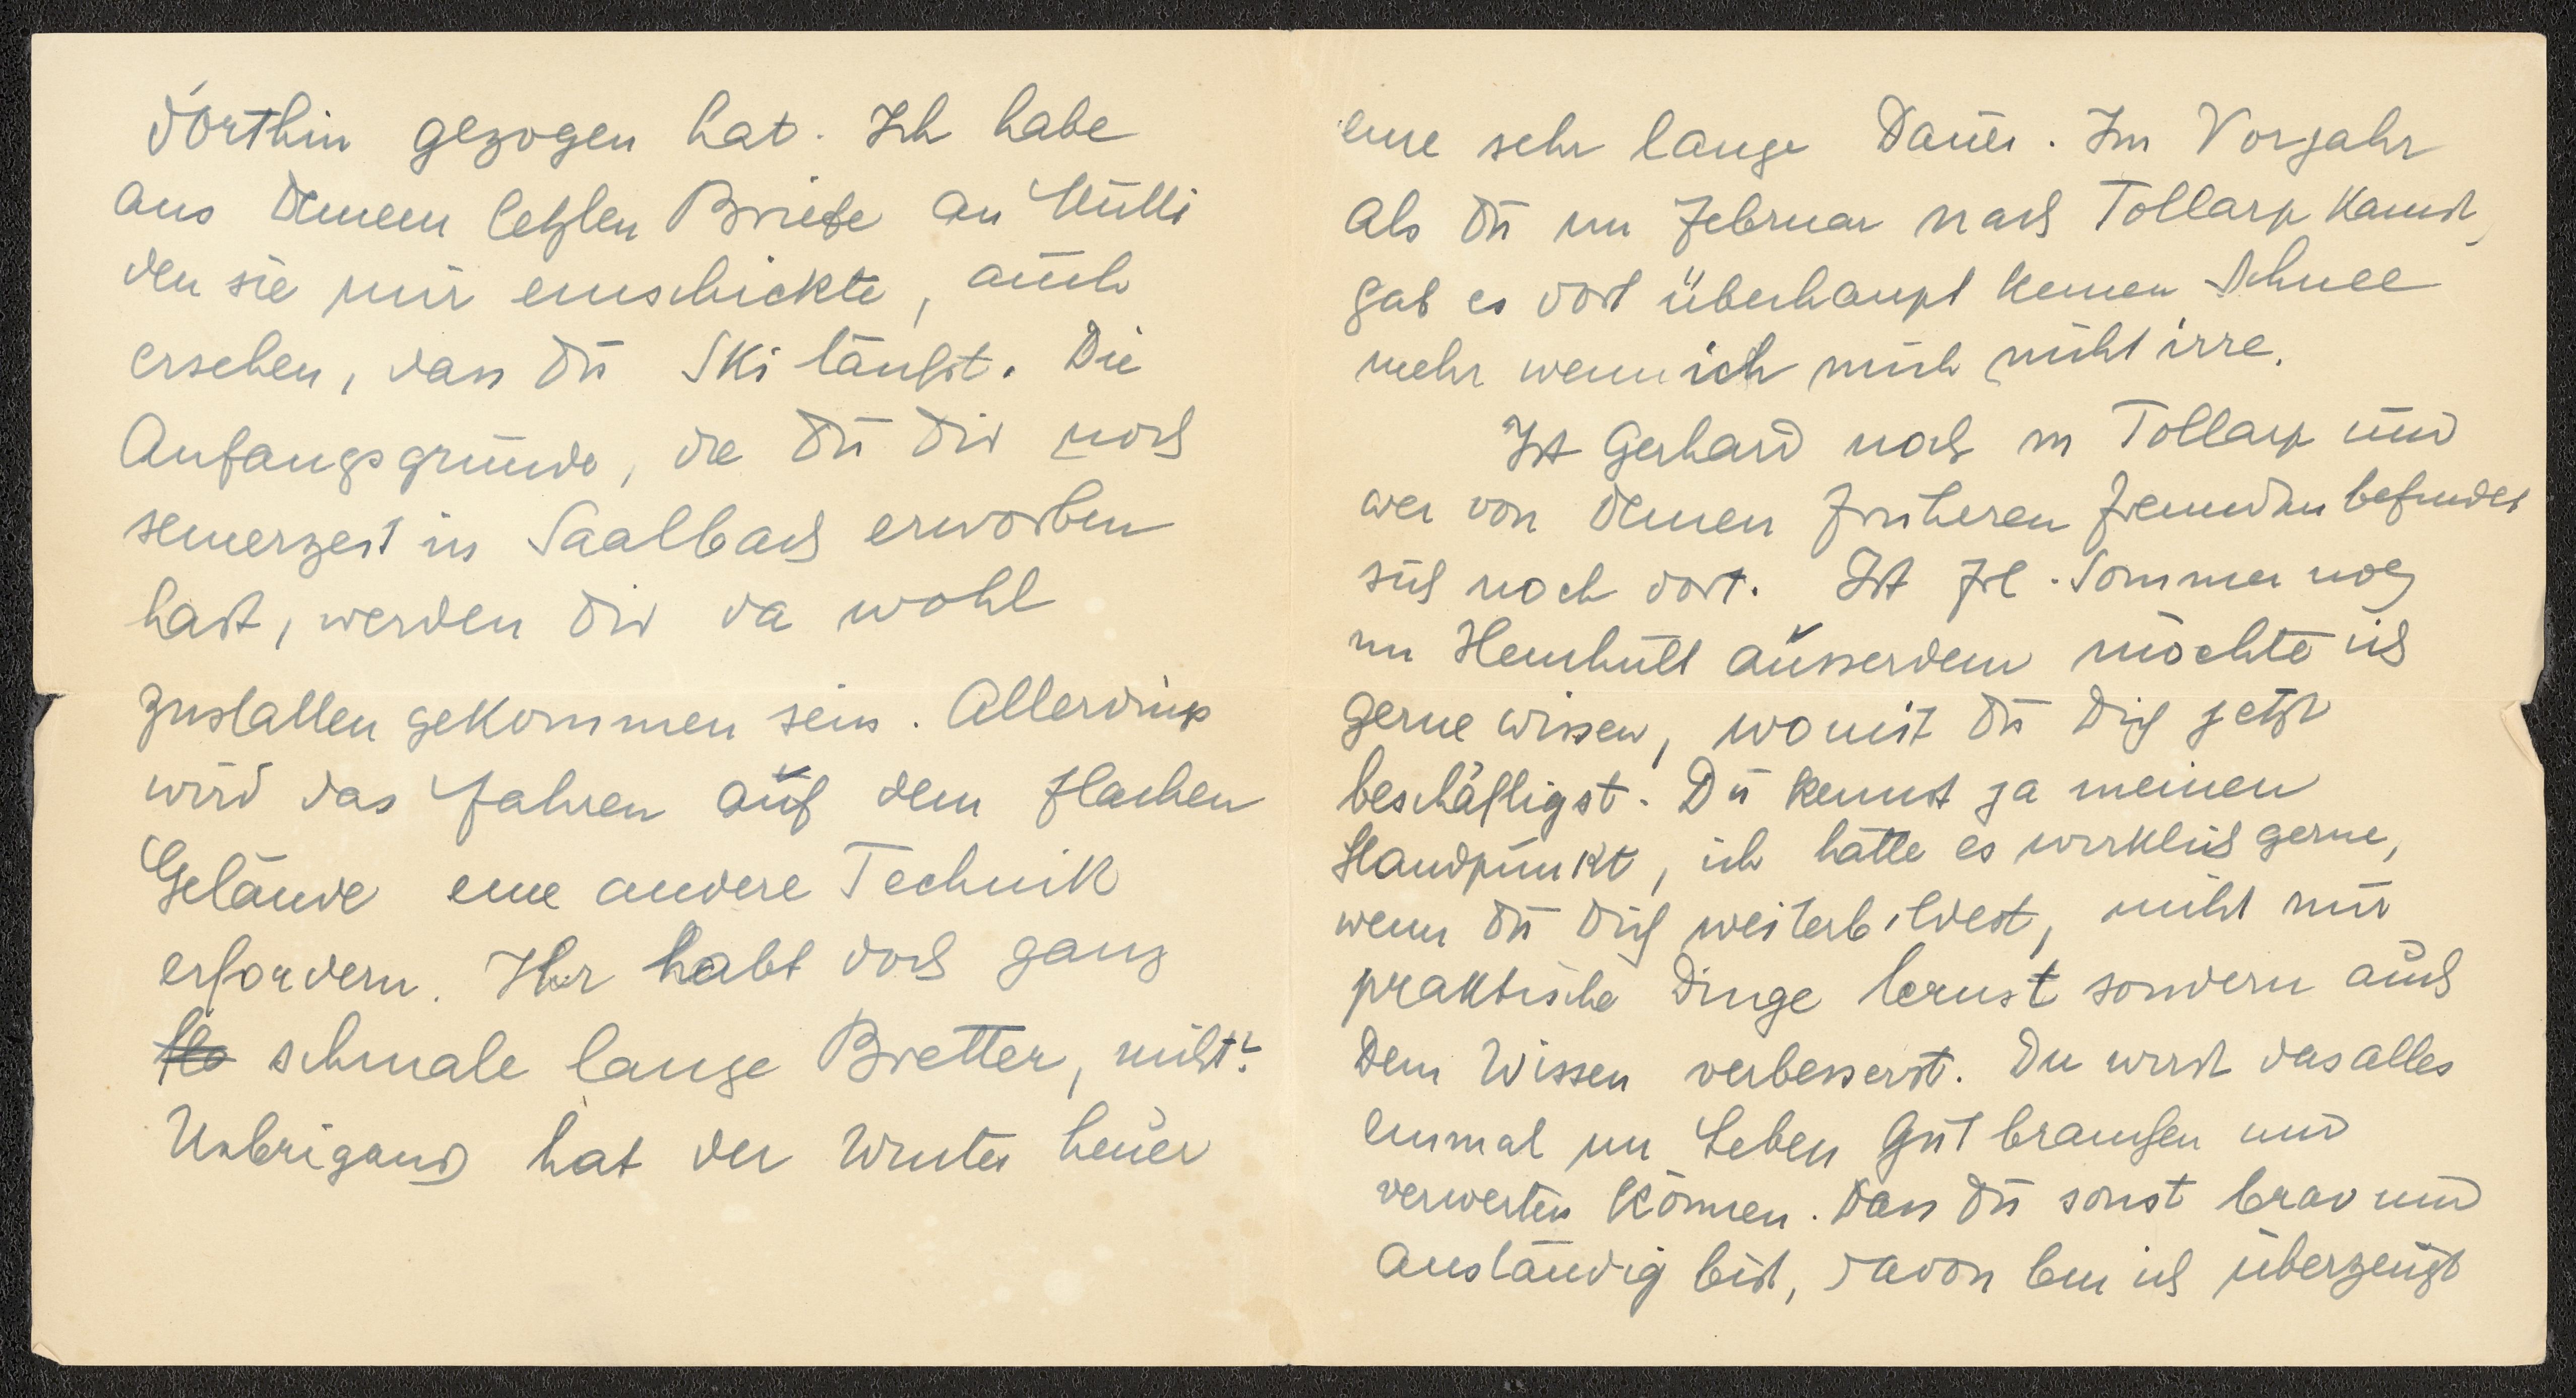 dorthin gezogen hat. Ich habe
aus Deinem letzten Briefe an Mutti
den sie mir einschickte, auch
ersehen, dass Du Ski läufst. Die
Anfangsgründe, die Du Dir noch
seinerzeit in Saalbach erworben
hast, werden Dir da wohl
zustatten gekommen sein. Allerdings
wird das Fahren auf dem flachen
Gelände eine andere Technik
erfordern. Ihr habt doch ganz
schmale lange Bretter, nicht?
Uebrigens hat der Winter heuer
eine sehr lange Dauer. Im Vorjahr
als Du im Februar nach Tollarp kamst,
gab es dort überhaupt keinen Schnee
mehr wenn ich mich nicht irre.
Ist Gerhard noch in Tollarp und
wer von Deinen früheren Freunden befindet
sich noch dort. Ist Frl. Sommer noch
im Heim
ausserdem möchte ich
gerne wissen, womit Du Dich jetzt
beschäftigst. Du kennst ja meinen
Standpunkt, ich hätte es wirklich gerne,
wenn Du Dich weiterbildest, nicht nur
praktische Dinge lernst sondern auch
Dein Wissen verbesserst. Du wirst das alles
einmal im Leben gut brauchen und
verwerten können. Dass Du sonst brav und
anständig bist, davon bin ich überzeugt